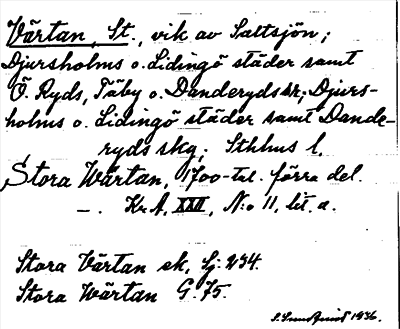 Värtan, St., vik av Saltsjön;
Djursholms o. Lidingö städer samt
Ö. Ryds, Täby o. Danderyds sr; Djurs-
holms o. Lidingö städer samt Dande-
ryds skg; Sthhus l.
Stora Wärtan, 1700-tal. förra del.
—. Kr. A, XXII, N:o 11, lit. a.
Stora Värtan sk, Gj: 234.
Stora Wärtan G. 75.
1936.